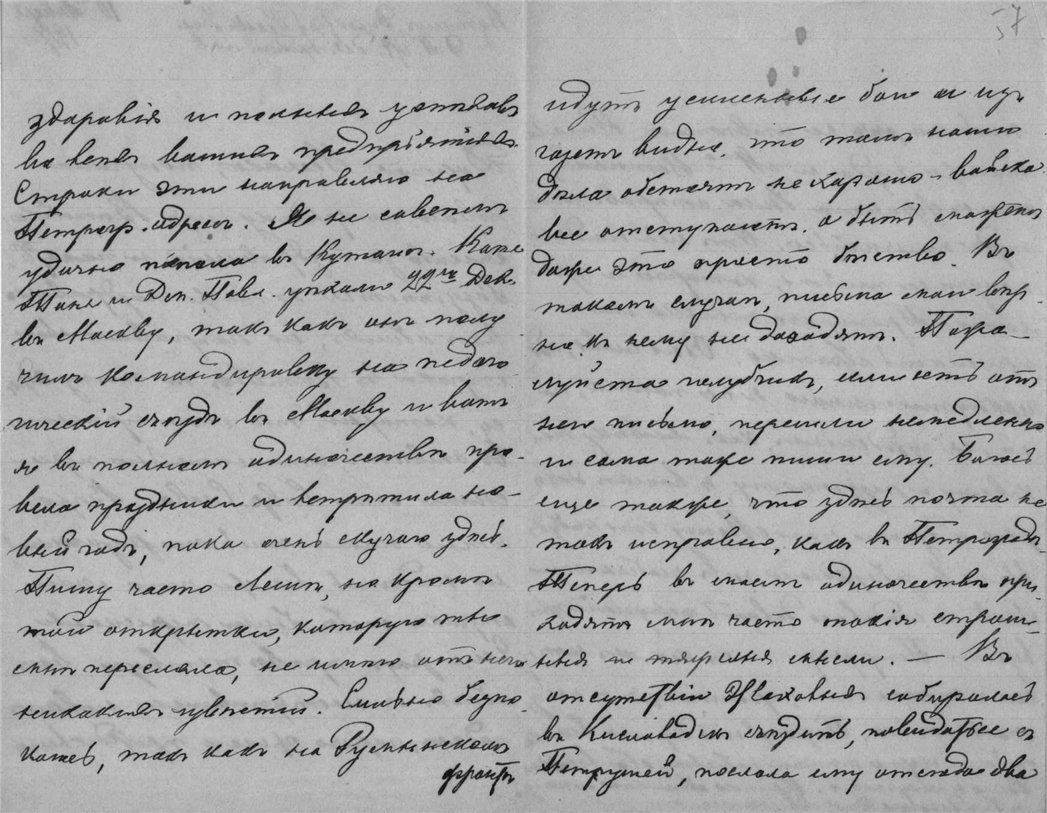 57
здоровія и полныхъ успѣховъ
во всѣхъ вашихъ предпріятіяхъ.
Строки эти направляю на
Петрогр. адресъ. Я не совсѣмъ
удачно попала въ Кутаисъ. Кате
Таня и Дм. Павл. уѣхали 22го Дек.
въ Москву, такъ какъ онъ полу
чилъ командировку на педаго
гическій съѣздъ въ Москву и вотъ
я въ полномъ одиночествѣ про-
вела праздники и встрѣтила но-
вый годъ, пока очень скучаю здѣсь.
Пишу часто Лешѣ, но кромѣ
той открытки, которую ты
мнѣ переслала, не имѣю отъ него
никакихъ извѣстій. Сильно безпо
коюсь, такъ какъ на Румынскомъ
фронтѣ
идутъ усиленные бои и изъ
газетъ видно, что тамъ наши
дѣла обстоятъ не хорошо – войска
все отступаютъ, а быть можетъ
даже это просто бѣгство. Въ
такомъ случаѣ, письма мои вѣр-
но къ нему не доходятъ. Пожа-
луйста голубчикъ, если есть отъ
него письмо, перешли немедленно
и сама тоже пиши ему. Боюсь
еще также, что здѣсь почта не
такъ исправно, какъ въ Петроградѣ.
Теперь въ моемъ одиночествѣ при-
ходятъ мнѣ часто такія страш-
ныя и тяжелыя мысли. — Въ
отсутствіи собиралась
въ Кисловодскъ съѣздить, повидаться съ
Петрушей, послала ему отсюда два